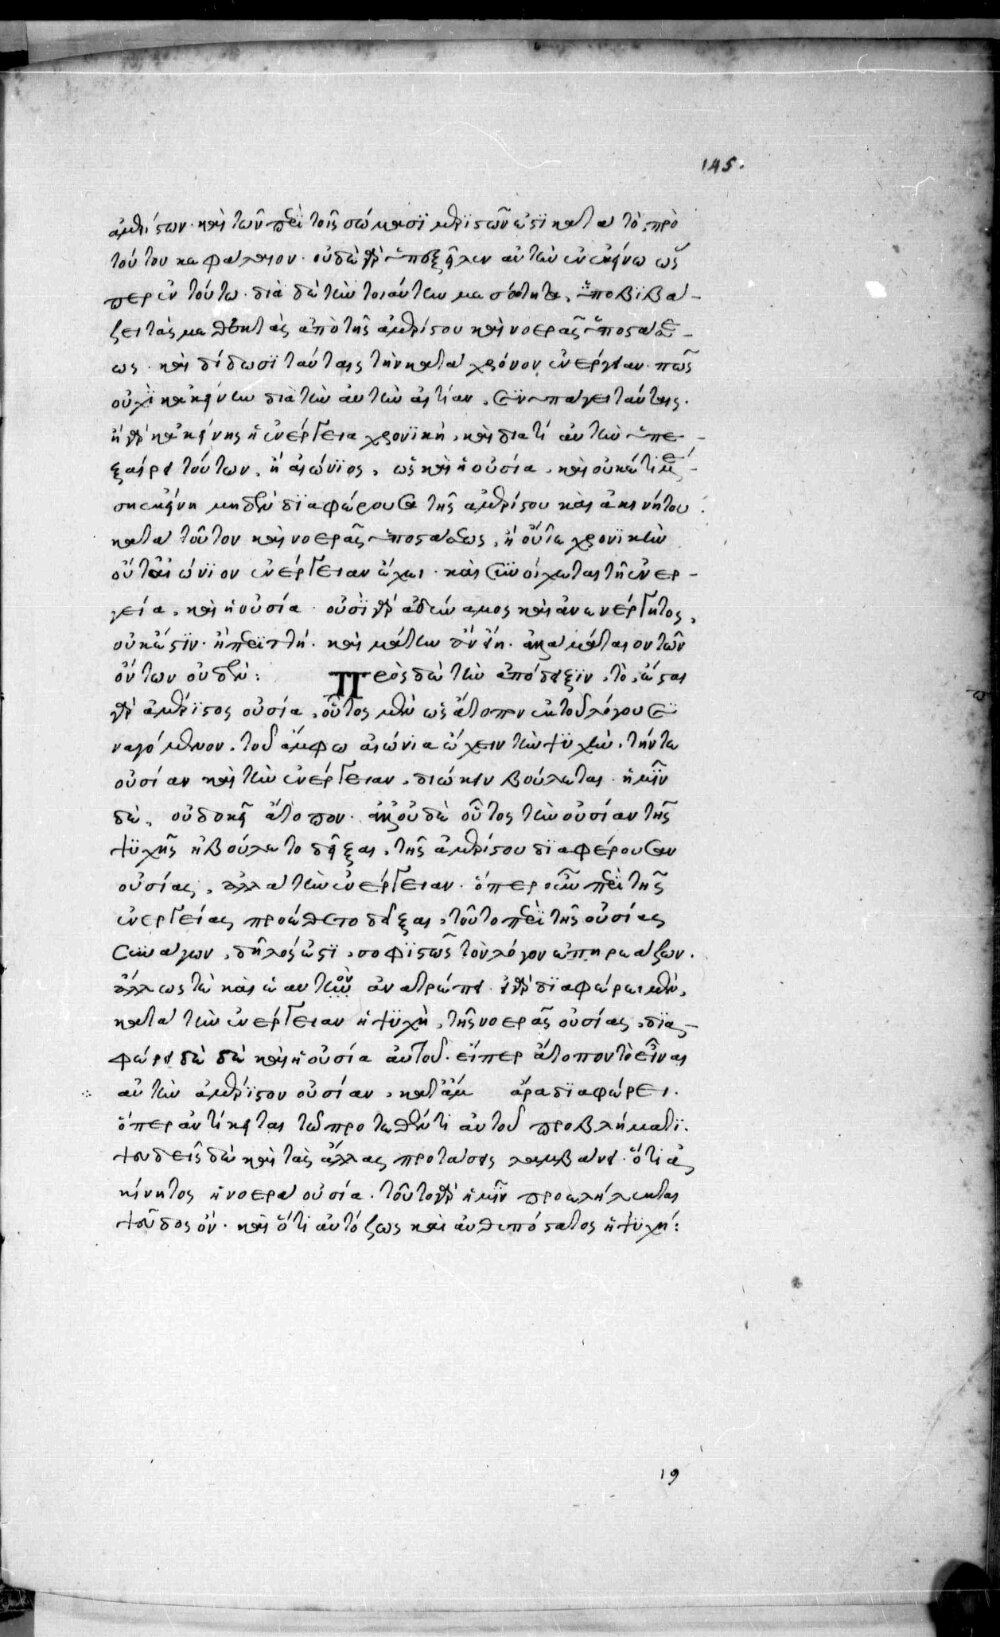 145.
ἀμερίστων· καὶ τῶν περὶ τοῖς σώμασι μεριστῶν ἐστὶ κατὰ τὸ πρὸ
τούτου κεφάλαιον· οὐδὲ γὰρ ὑπεξεῖλεν αὐτὴν ἐν ἐκείνω ὥς
περ ἐν τούτω. διὰ δὲ τὴν τοιαύτην μεσότητα, ὑποβιβά-
ζει τὰς μεθεκτὰς ἀπὸ τῆς ἀμερίστου καὶ νοερᾶς ὑποστάσε-
ως· καὶ δίδωσι ταύταις τὴν κατὰ χρόνον ἐνέργειαν· πῶς
οὐχὶ κἀκείνην διὰ τὴν αὐτὴν αἰτίαν, συνυπάγει ταύταις.
ἢ γὰρ κἀκείνης ἡ ἐνέργεια χρονικὴ, καὶ διατί αὐτὴν ὑπε-
ξαίρει τούτων, ἢ αἰώνιος, ὡς καὶ ἡ οὐσία, καὶ οὐκέτι με-
ση ἐκείνη μηδὲν διαφέρουσα τῆς ἀμερίστου καὶ ἀκινήτου
κατὰ τοῦτον καὶ νοερᾶς ὑποστάσεως, ἢ οὔτε χρονικὴν
οὔτε αἰώνιον ἐνέργειαν ἔχει· καὶ συνοίχεται τῆ ἐνερ-
γεία, καὶ ἡ οὐσία· οὐσία γὰρ ἀδύναμος καὶ ἀνενέργητος,
οὐκ ἔστιν· ἢ περιττή· καὶ μάτην ἂν εἴη. ἀλλὰ μάταιον τῶν
ὄντων οὐδέν: Πρὸς δὲ τὴν ἀπόδειξιν, τὸ, ἔσται
γὰρ ἀμέριστος οὐσία, οὗτος μὲν ὡς ἄτοπον ἐκ τοῦ λόγου συ
ναγόμενον, τοῦ ἄμφω αἰώνια ἔχειν τὴν ψυχὴν, τήν τε
οὐσίαν καὶ τὴν ἐνέργειαν, διώκειν βούλεται· ἡμῖν
δὲ, οὐ δοκεῖ ἄτοπον· ἀλλ' οὐδὲ οὗτος τὴν οὐσίαν τῆς
ψυχῆς ἠβούλετο δεῖξαι, τῆς ἀμερίστου διαφέρουσαν
οὐσίας, ἀλλὰ τὴν ἐνέργειαν· ὅπερ οὖν περὶ τῆς
ἐνεργείας προέθετο δεῖξαι, τοῦτο περὶ τῆς οὐσίας
συνάγων, δῆλός ἐστι, σοφιστῶς τὸν λόγον ἐπηρεάζων.
ἄλλως τὲ καὶ ἑαυτὸν ἀνατρέπει· εἰ γὰρ διαφέρει μὲν,
κατὰ τὴν ἐνέργειαν ἡ ψυχὴ, τῆς νοερᾶς οὐσίας, δια-
φέρει δὲ δὴ καὶ ἡ οὐσία αὐτοῦ· εἴπερ ἄτοπον τὸ εἶναι
αὐτὴν ἀμέριστον οὐσίαν, κατ' ἄμ ἄρα διαφέρει.
ὅπερ ἀντίκειται τῶ προτεθέντι αὐτοῦ προβλήματι.
ψευδεῖς δὲ καὶ τὰς ἄλλας προτάσεις λαμβάνει· ὅτι ἀ
κίνητος ἡ νοερὰ οὐσία. τοῦτο γὰρ ἡμῖν προελήλεκται
ψεῦδος ὄν· καὶ ὅτι αὐτόζως καὶ αὐθυπόστατος ἡ ψυχή:
19